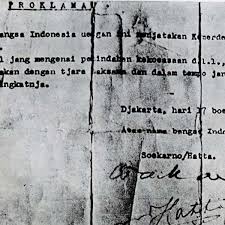 PROKLAMA
angsa Indonesia dengan ini menjatakan Kemerde
l jang mengenai pemindahan kekoeasaan d.l.l.,
akan dengan tjara saksama dan dalam tempo jan
ingkatnja.
Djakarta, hari 17 boe
Atas nama bangsa Indo
Soekarno/Hatta.